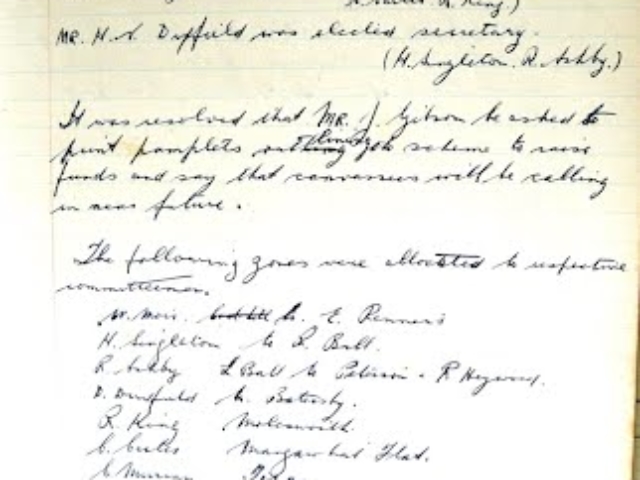 King)
MR. H. S. Duffield was elected secretary.
(H. Singleton. R. Ashby.)
It was resolved that MR. J. Gibson be asked to
print pamplets outlining scheme to raise
funds and say that canvassers will be calling
in near future.
The following zones were allocated to respective
committeemen.
to E. Penners
H. Singleton to L. Ball.
R. Ashby L Ball to Peterson - R Heywood.
D. Duffield to Battersby.
R. King Molesworth.
C. Flat.
C Murray